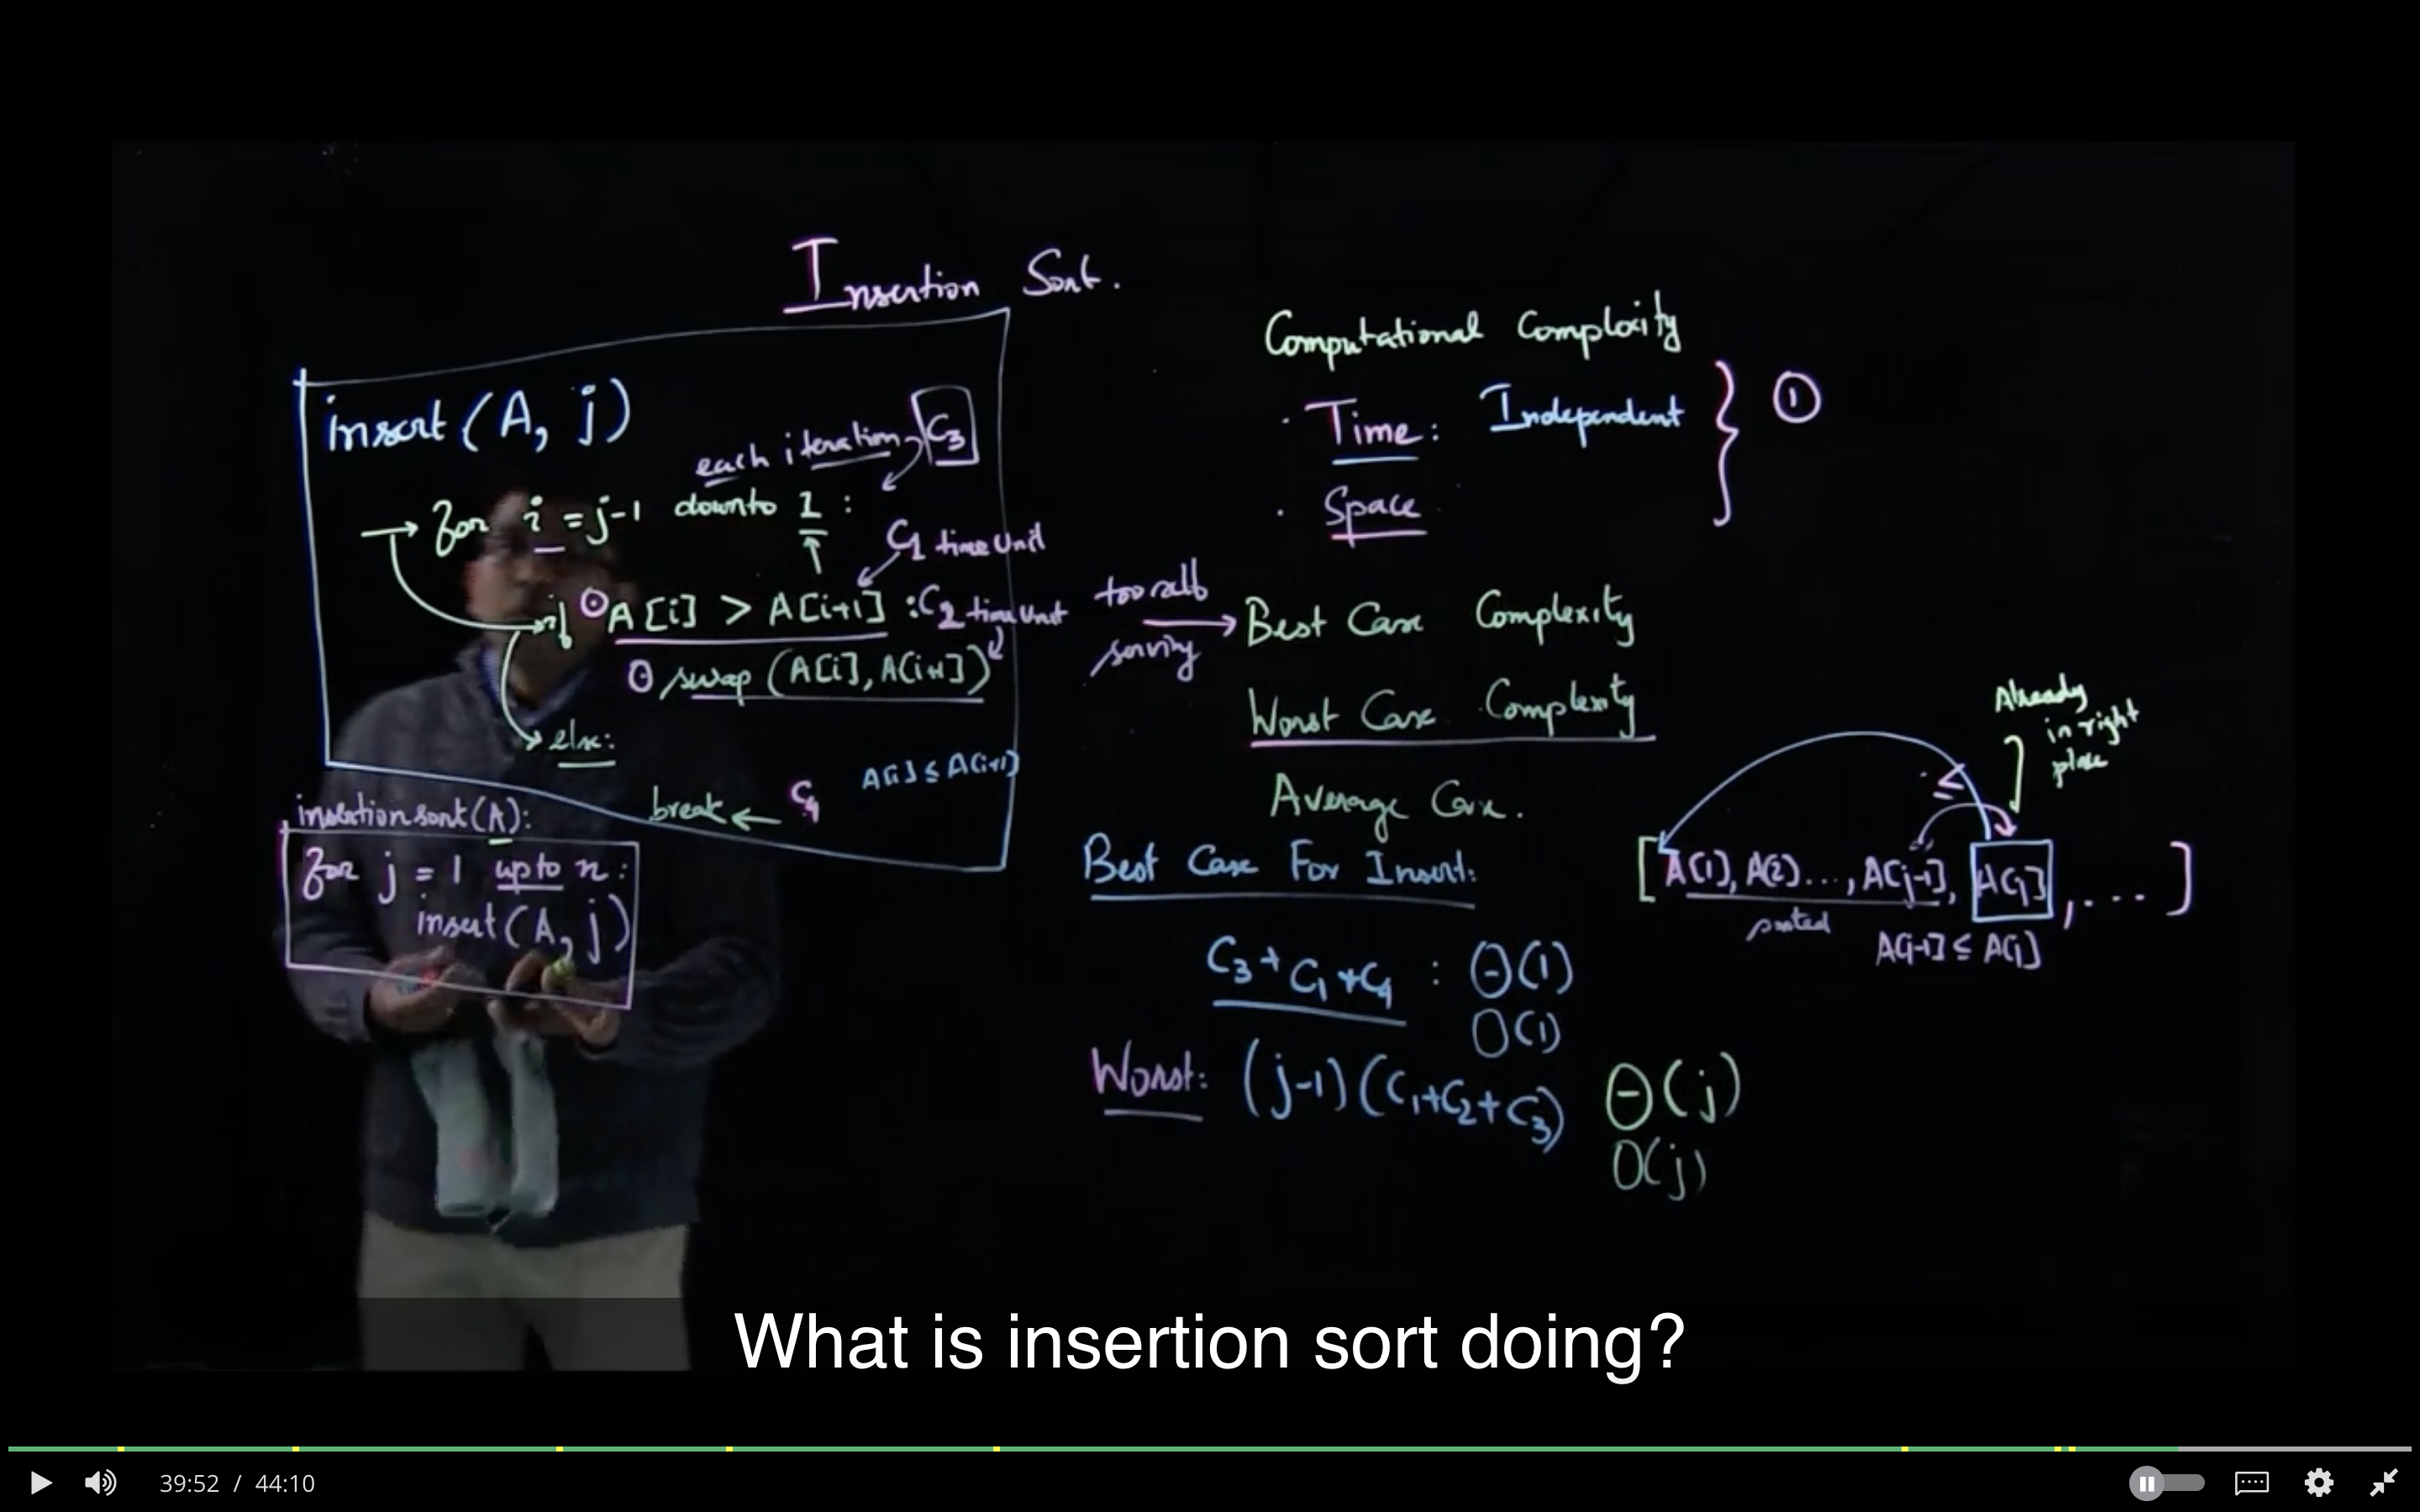 Insertion Sort.
insert(A, j)
each iteration C3
for i = j-1 downto 1 :
C1 time Unit
if A[i] > A[i+1] : C2 time Unit
swap (A[i], A[i+1])
else:
A[i] ≤ A[i+1]
break ← C4
insertion sort(A):
for j = 1 upto n:
insert(A, j)
Computational Complexity
· Time: Independent } ①
· Space
→ Best Case Complexity
Worst Case Complexity
Average Case.
Best Case For Insert:
C3 + C1 + C4 : Θ(1)
O(1)
Worst: (j-1)(C1+C2+C3) Θ(j)
O(j)
Already
in right
place
≤
[A(1), A(2)..., A[j-1], A[j], ... ]
sorted
A[j-1] ≤ A[j]
What is insertion sort doing?
39:52 / 44:10